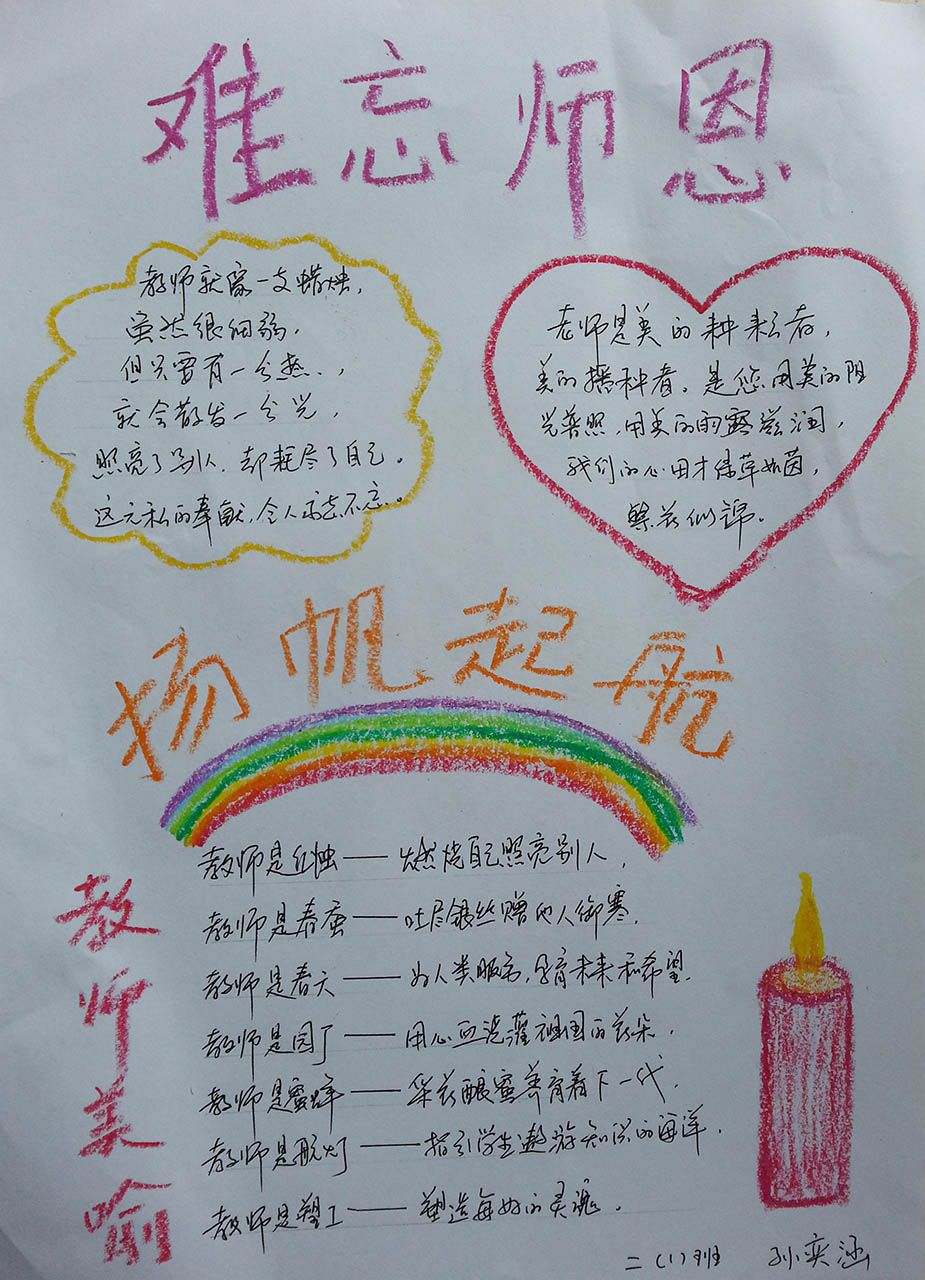 难忘师恩
教师就像一支蜡烛，
虽然很细弱，
但只要有一分热、，
就会散发一分光，
照亮了别人、却耗尽了自己。
这无私的奉献，令人永志不忘。
老师是美的耕耘者，
美的播种者。是您用美的阳
光普照，用美的雨露滋润，
我们的心田才绿草如茵，
繁花似锦。
扬帆起航
教师美喻
教师是红烛——燃烧自己照亮别人，
教师是春蚕——吐尽银丝赠他人御寒，
教师是春天——为人类服务，孕育未来和希望，
教师是园丁——用心血浇灌祖国的花朵，
教师是蜜蜂——采花酿蜜养育着下一代，
教师是航灯——指引学生遨游知识的海洋，
教师是塑工——塑造每好的灵魂。
二(1)班 孙奕涵